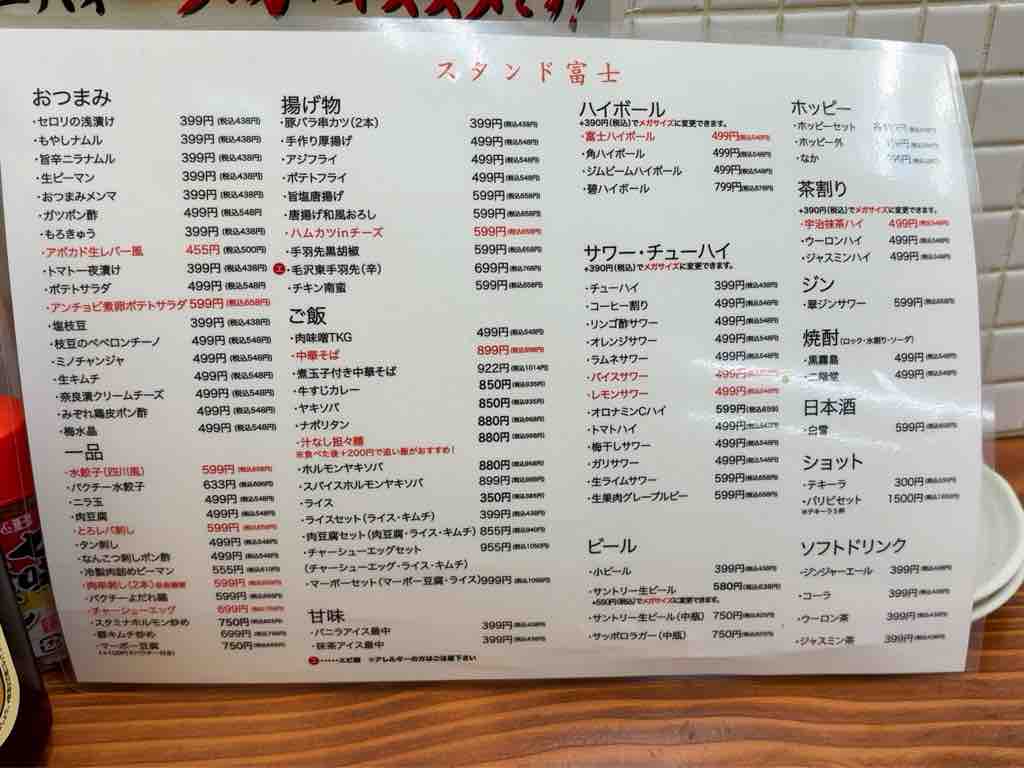 ススメです!
スタンド富士
おつまみ
・セロリの浅漬け 399円(税込438円)
・もやしナムル 399円(税込438円)
・旨辛ニラナムル 399円(税込438円)
・生ピーマン 399円(税込438円)
・おつまみメンマ 399円(税込438円)
・ガツポン酢 499円(税込548円
・もろきゅう 399円(税込438円)
・アボカド生レバー風 455円(税込500円)
・トマト一夜漬け 399円(税込438円)
・ポテトサラダ 499円(税込548円
・アンチョビ煮卵ポテトサラダ 599円(税込658円)
・塩枝豆 399円(税込438円)
・枝豆のペペロンチーノ 499円(税込548円)
・ミノチャンジャ 499円(税込548円)
・生キムチ 499円(税込548円)
・奈良漬クリームチーズ 499円(税込548円)
・みぞれ鶏皮ポン酢 499円(税込548円)
・梅水晶 499円(税込548円)
一品
・水餃子(四川風) 599円(税込658円)
・パクチー水餃子 633円(税込696円)
・ニラ玉 499円(税込548円)
・肉豆腐 499円(税込548円)
・とろレバ刺し 599円(税込658円)
・タン刺し 499円(税込548円)
・なんこつ刺しポン酢 499円(税込548円)
・冷製肉詰めピーマン 555円(税込610円)
・肉串刺し(2本) 599円(税込658円)
・パクチーよだれ鶏 599円(税込658円)
・チャーシューエッグ 699円
・スタミナホルモン炒め 750円(税込825円)
・豚キムチ炒め 699円
・マーボー豆腐 750円(税込825円)
揚げ物
・豚バラ串カツ(2本) 399円(税込438円)
・手作り厚揚げ 499円(税込548円)
・アジフライ 499円(税込548円)
・ポテトフライ 499円(税込548円)
・旨塩唐揚げ 599円(税込658円)
・唐揚げ和風おろし 599円(税込658円)
・ハムカツinチーズ 599円(税込658円)
・手羽先黒胡椒 599円(税込658円)
エ・毛沢東手羽先(辛) 699円(税込768円)
・チキン南蛮 599円(税込658円)
ご飯
・肉味噌TKG 499円(税込548円)
・中華そば 899円(税込988円)
・煮玉子付き中華そば 922円(税込1014円)
・牛すじカレー 850円(税込935円)
・ヤキソバ 850円(税込935円)
・ナポリタン 880円(税込968円)
・汁なし担々麺 880円(税込968円)
※食べた後+200円で追い飯がおすすめ!
・ホルモンヤキソバ 880円(税込968円)
・スパイスホルモンヤキソバ 899円(税込988円)
・ライス 350円(税込385円)
・ライスセット(ライス・キムチ) 399円(税込438円)
・肉豆腐セット(肉豆腐・ライス・キムチ) 855円(税込940円)
・チャーシューエッグセット 955円(税込1050円)
(チャーシューエッグ・ライス・キムチ)
・マーボーセット(マーボー豆腐・ライス)999円(税込1098円)
甘味
・バニラアイス最中 399円(税込438円)
・抹茶アイス最中 399円(税込438円)
エ・・・・・エビ類 ※アレルギーの方はご注意下さい
ハイボール
+390円(税込)でメガサイズに変更できます。
・富士ハイボール 499円(税込548円)
・角ハイボール 499円(税込548円)
・ジムビームハイボール 499円(税込548円)
・碧ハイボール 799円(税込878円)
サワー・チューハイ
+390円(税込)でメガサイズに変更できます。
・チューハイ 399円(税込438円)
・コーヒー割り 499円(税込548円)
・リンゴ酢サワー 499円(税込548円)
・オレンジサワー 499円(税込548円)
・ラムネサワー 499円(税込548円)
・バイスサワー 499円(税込548円)
・レモンサワー 499円(税込548円)
・オロナミンCハイ 599円(税込659)
・トマトハイ 499円
・梅干しサワー 499円(税込548円)
・ガリサワー 499円(税込548円)
・生ライムサワー 599円(税込658円)
・生果肉グレープルビー 599円(税込658円)
ビール
・小ビール 399円(税込438円)
・サントリー生ビール 580円(税込638円)
+550円(税込)でメガサイズに変更できます。
・サントリー生ビール(中瓶) 750円(税込825円)
・サッポロラガー(中瓶) 750円(税込825円)
ホッピー
・ホッピーセット
・ホッピー外
・なか
茶割り
+390円(税込)でメガサイズに変更できます。
・宇治抹茶ハイ 499円(税込548円)
・ウーロンハイ 499円(税込548円)
・ジャスミンハイ 499円(税込548円)
ジン
・翠ジンサワー 599円(税込658円)
焼酎(ロック・水割り・ソーダ)
・黒霧島 499円(税込548円)
・二階堂 499円(税込548円)
日本酒
・白雪 599円(税込658円)
ショット
・テキーラ 300円(税込330円)
・パリピセット 1500円(税込1650円)
※テキーラ5杯
ソフトドリンク
・ジンジャーエール 399円(税込438円)
・コーラ 399円(税込438円)
・ウーロン茶 399円(税込438円)
・ジャスミン茶 399円(税込438円)